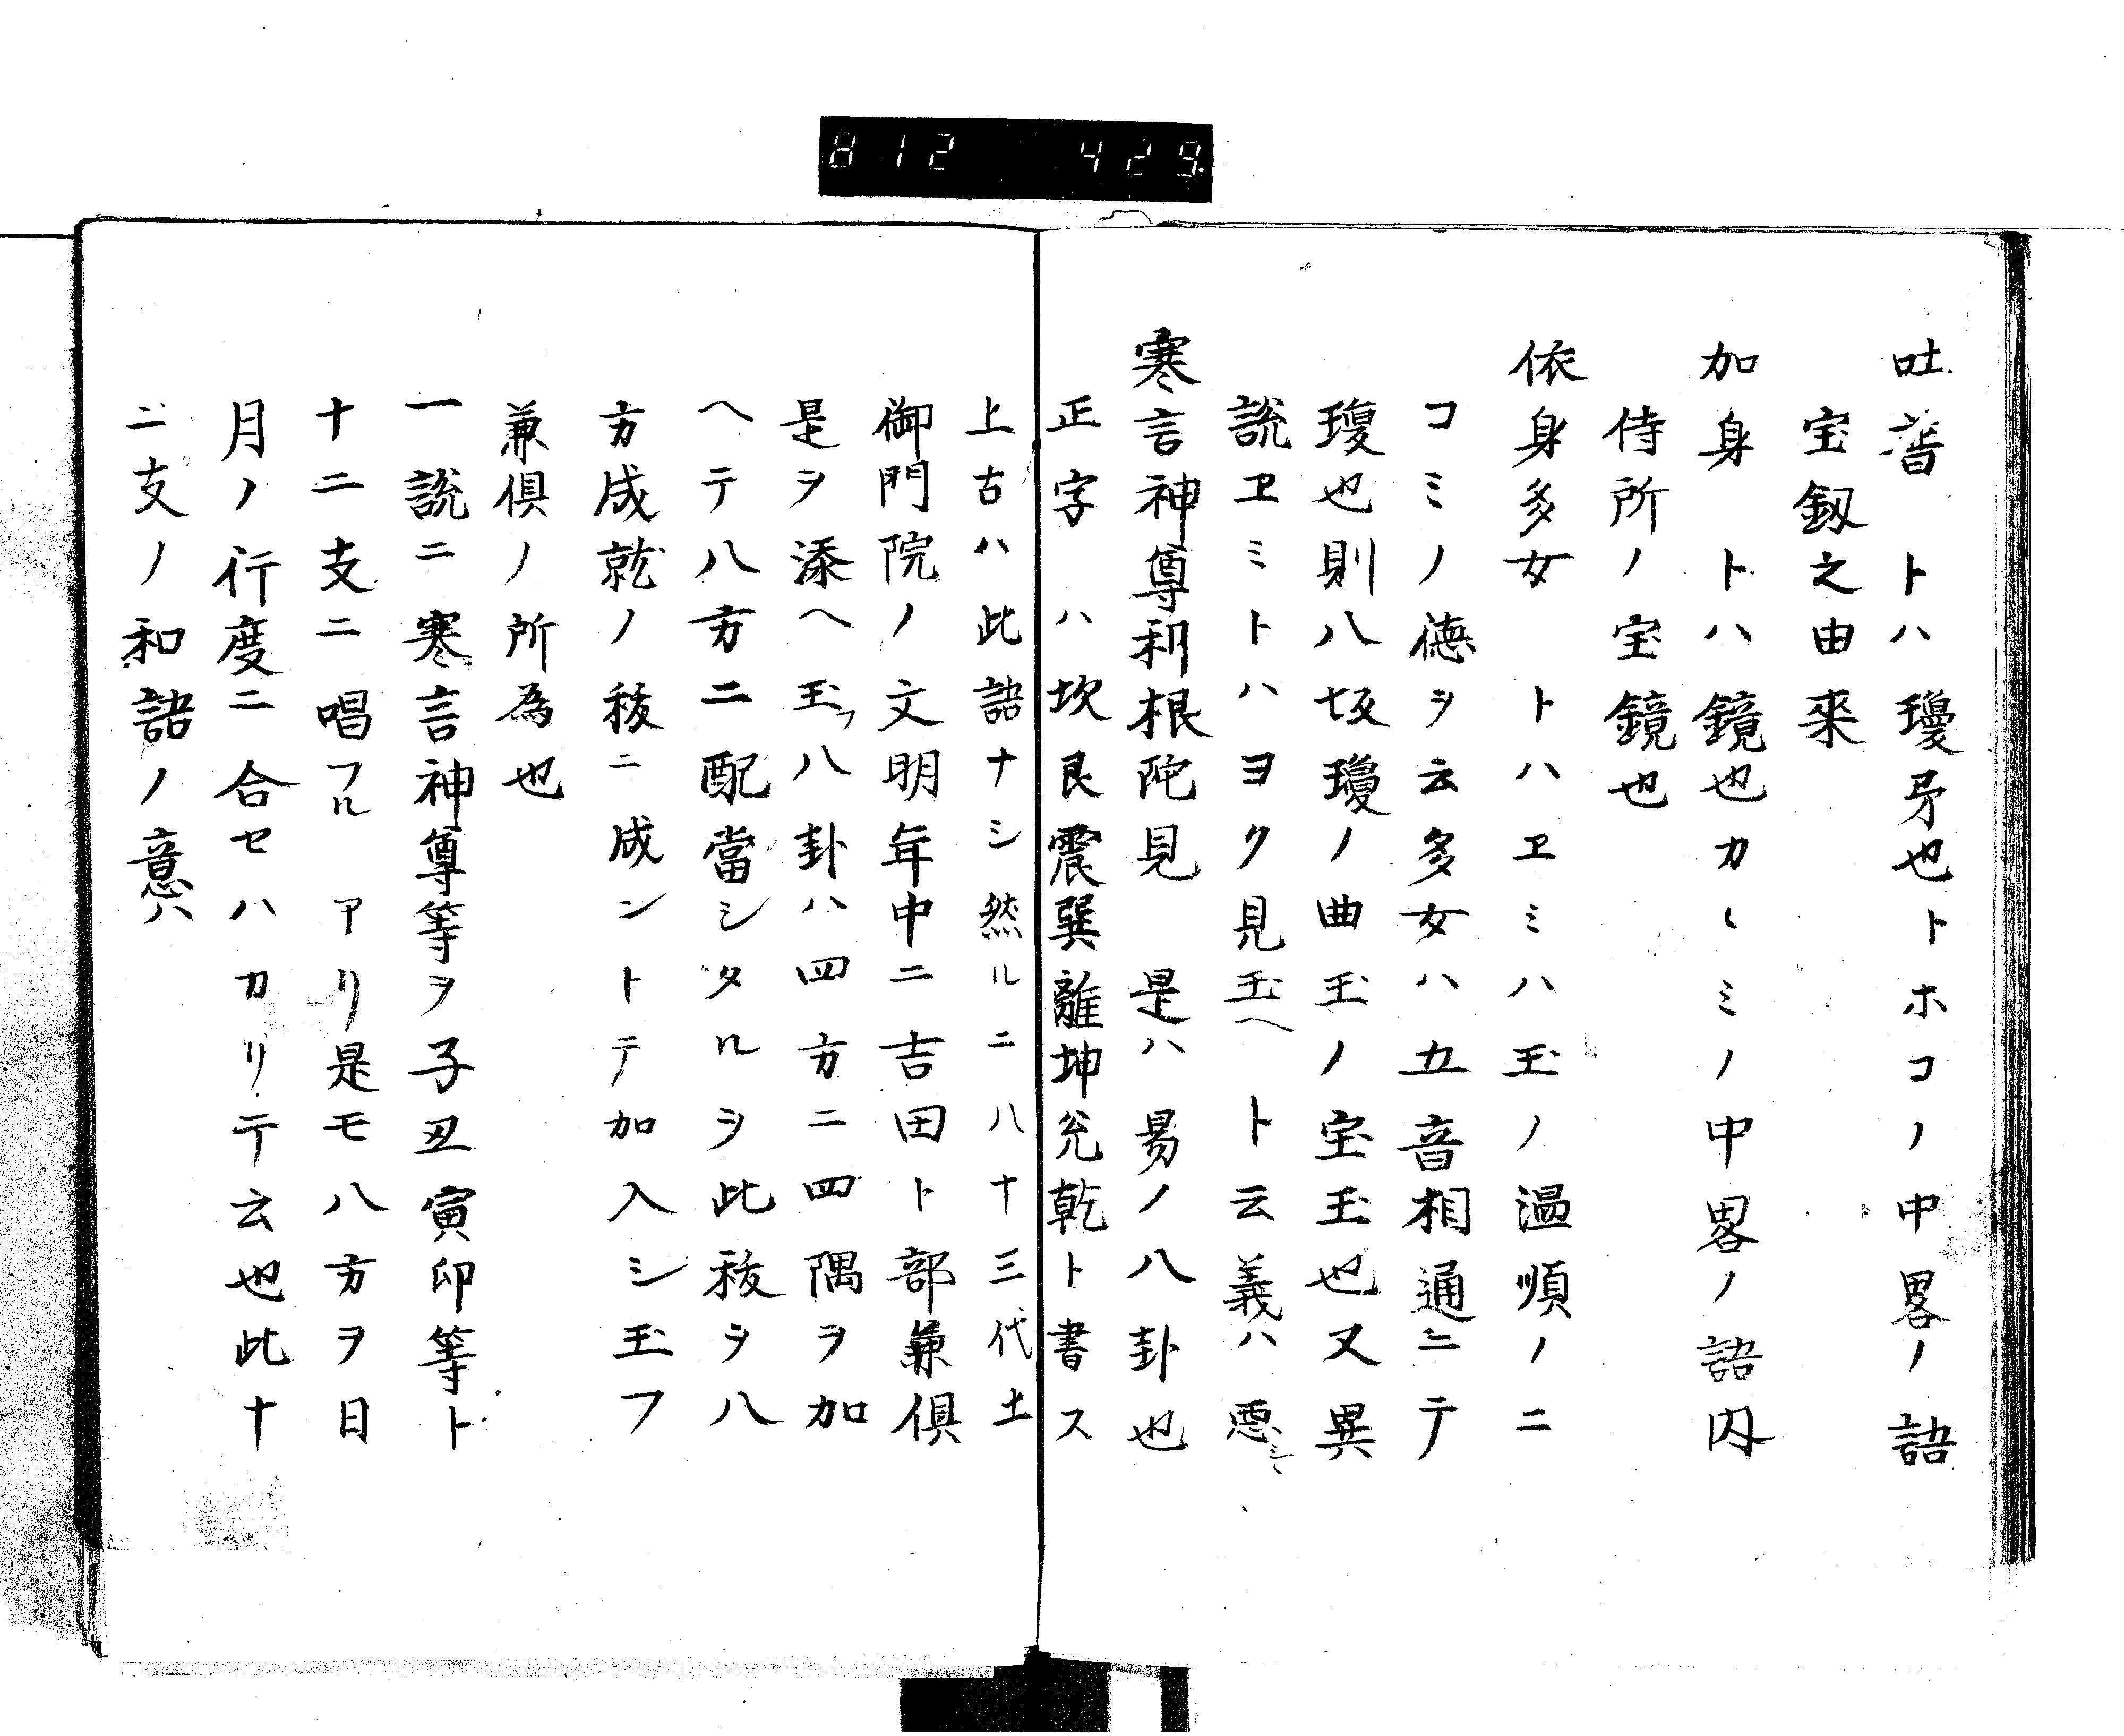 812 429
吐普トハ瓊矛也トホコノ中畧ノ語
宝釼之由來
加身トハ鏡也カヽミノ中畧ノ語内
侍所ノ宝鏡也
依身多女トハヱミハ玉ノ温順ノニ
コミノ徳ヲ云多女ハ五音相通ニテ
瓊也則八坂瓊ノ曲玉ノ宝玉也又異
説ヱミトハヨク見玉ヘト云義ハ悪シ
寒言神尊利根陀見是ハ易ノ八卦也
正字ハ坎艮震巽離坤兊乾ト書ス
上古ハ此語ナシ然ルニ八十三代土
御門院ノ文明年中ニ吉田ト部兼倶
是ヲ添ヘ玉フ八卦ハ四方ニ四隅ヲ加
ヘテ八方ニ配當シタルヲ此秡ヲ八
方成就ノ秡ニ成ントテ加入シ玉フ
兼倶ノ所為也
一説ニ寒言神尊等ヲ子丑寅卯等ト
十二支ニ唱フルアリ是モ八方ヲ日
月ノ行度ニ合セハカリテ云也此十
二支ノ和語ノ意ハ